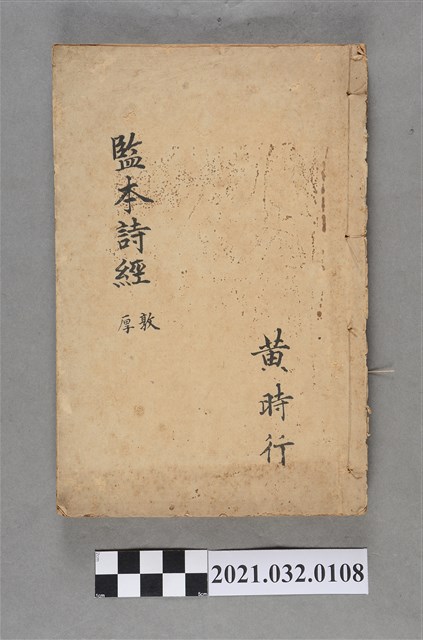 監本詩經
敦厚
黄時行
2021.032.0108